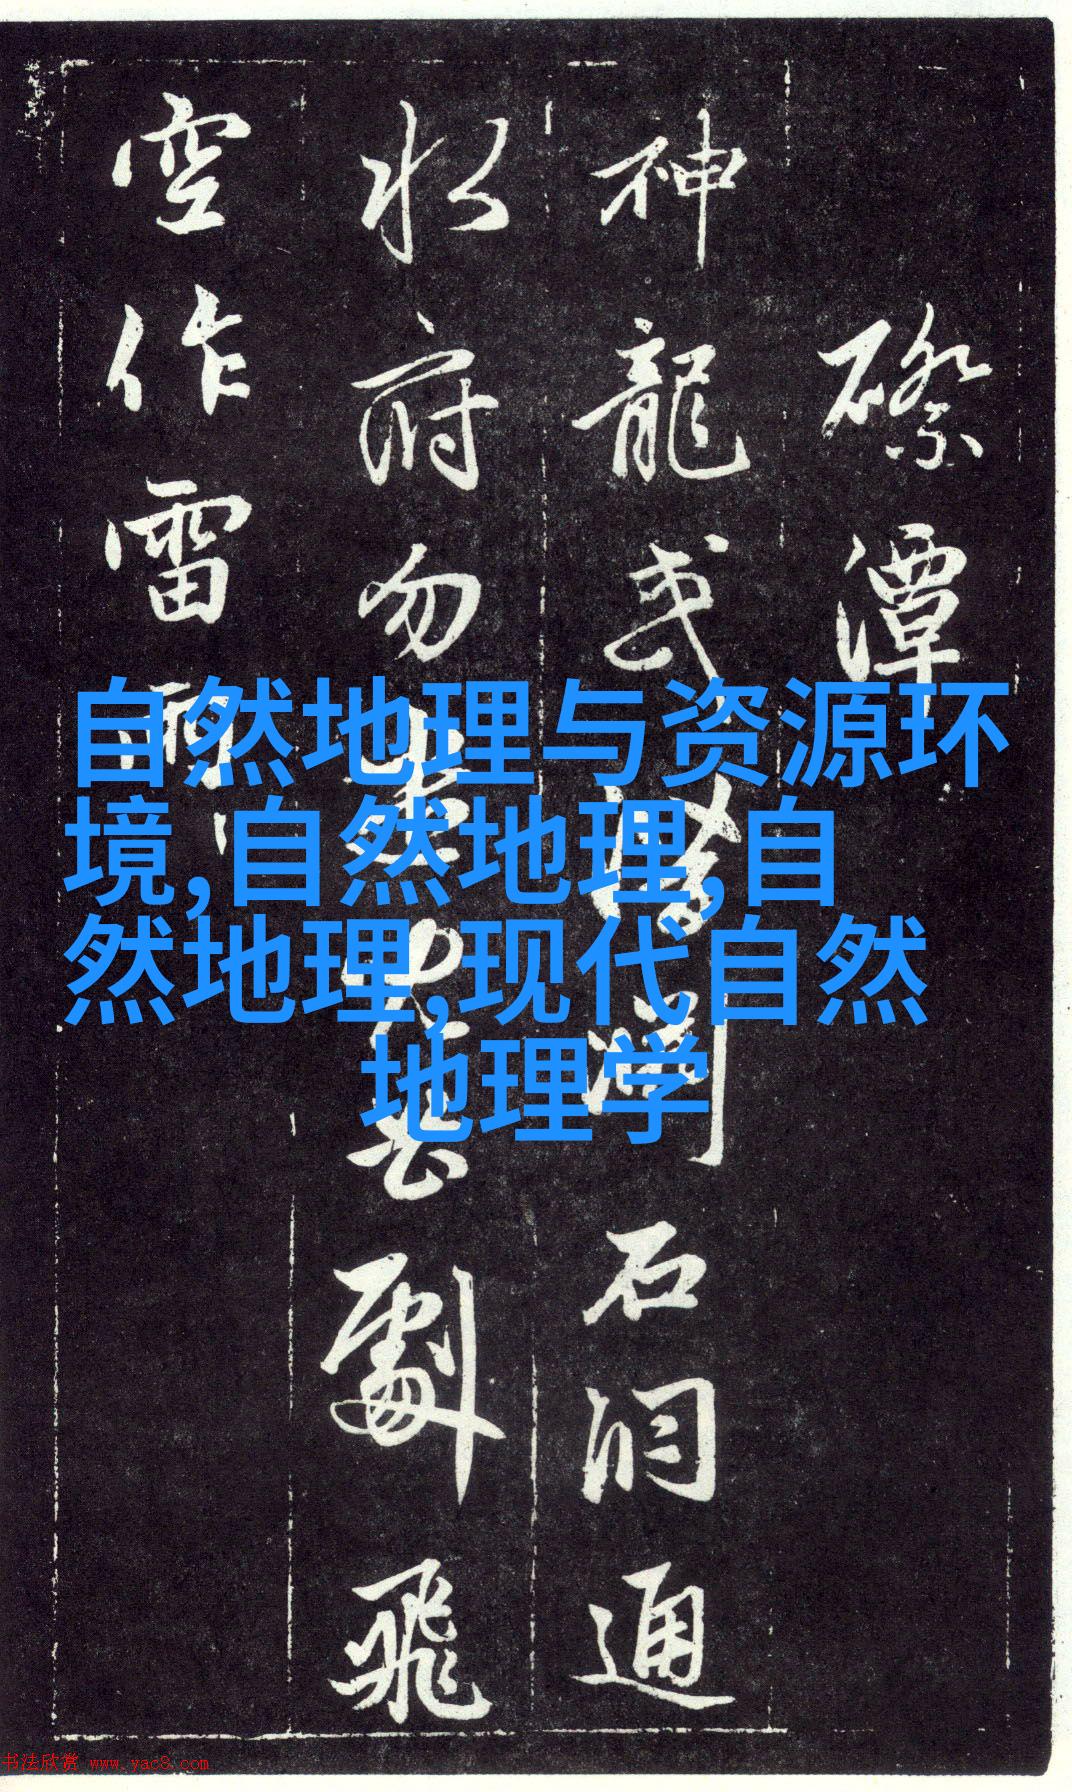 磜潭
神龍或潛淵石洞通
水府勿
劇飛
空作雷雨
自然地理与资源环
境,自然地理,自
然地理,现代自然
地理学
书法欣赏 www.yac8.com